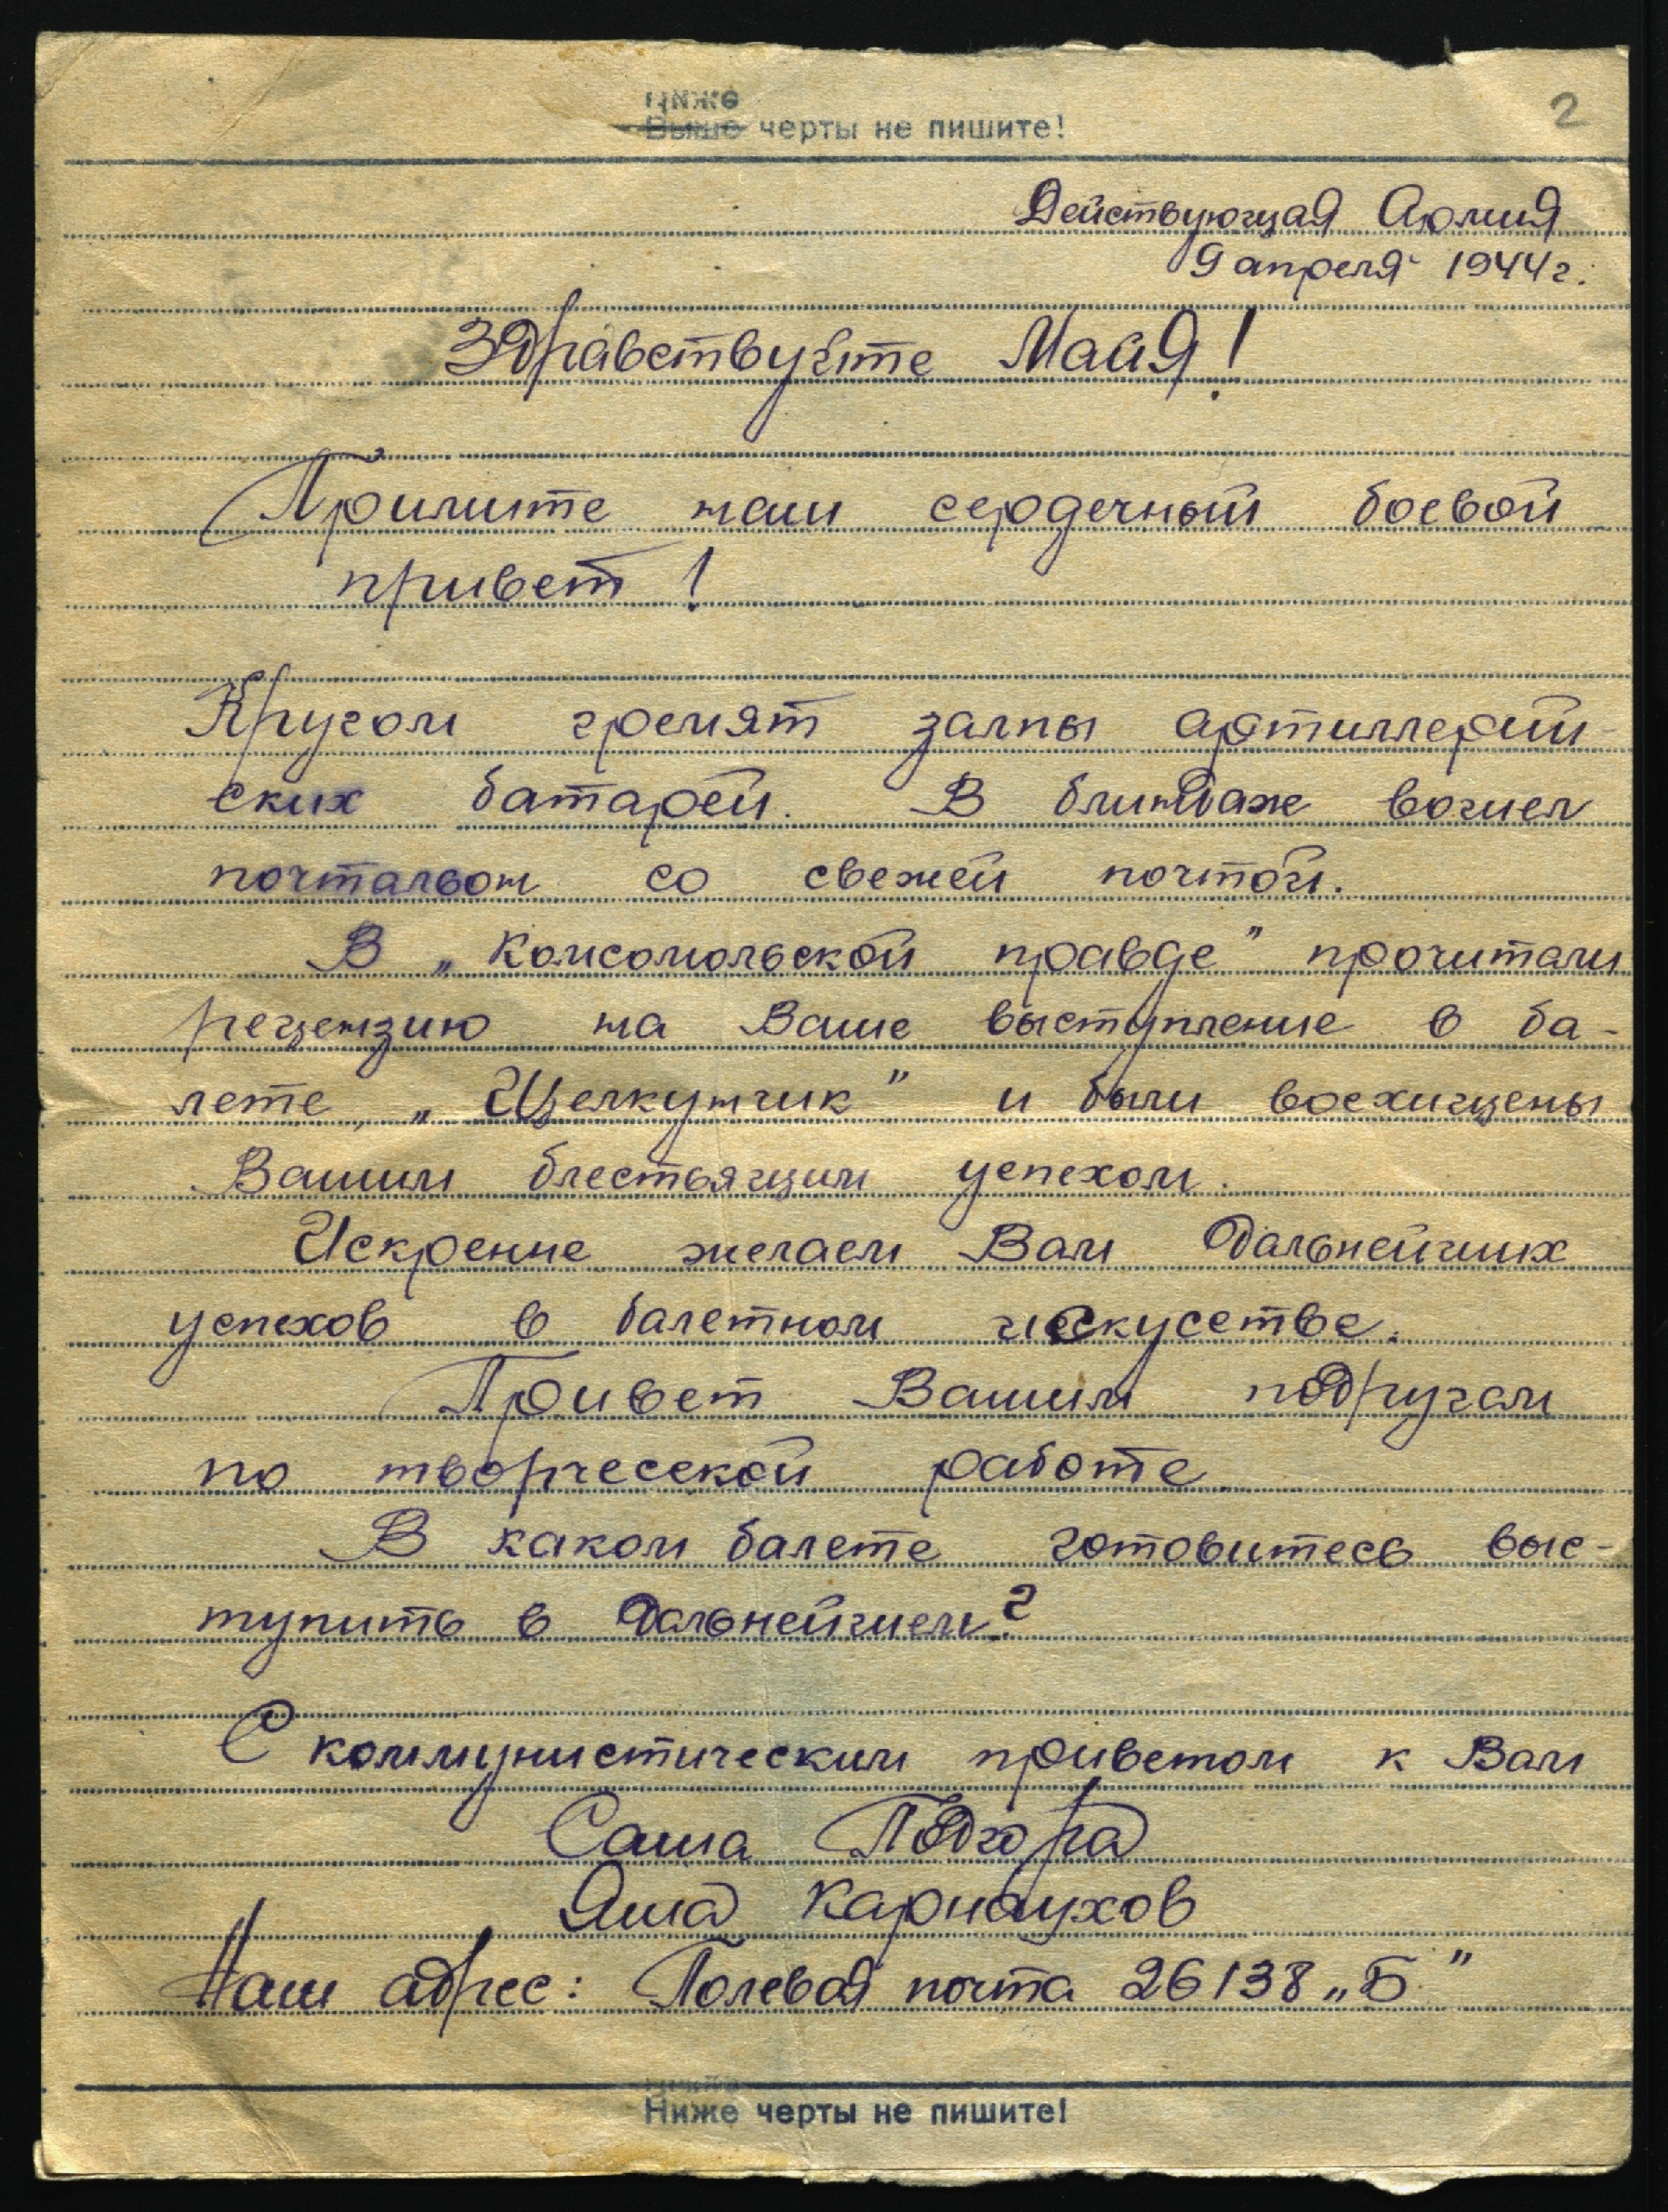 Ниже
Выше черты не пишите!
2
Действующая Армия
9 апреля 1944 г.
Здравствуйте Майя!
Примите наш сердечный боевой
привет!
Кругом гремят залпы артиллерий-
ских батарей. В блиндаж вошел
почтальон со свежей почтой.
В „Комсомольской правде" прочитали
рецензию на Ваше выступление в ба-
лете „Щелкунчик" и были восхищены
Вашим блестьящим успехом.
Искренне желаем Вам дальнейших
успехов в балетном искусстве.
Привет Вашим подругам
по творчесской работе
В каком балете готовитесь выс-
тупить в дальнейшем?
С коммунистическим приветом к Вам
Саша Подгора
Яша Карнаухов
Наш адрес: Полевая почта 26138 „Б"
Ниже черты не пишите!